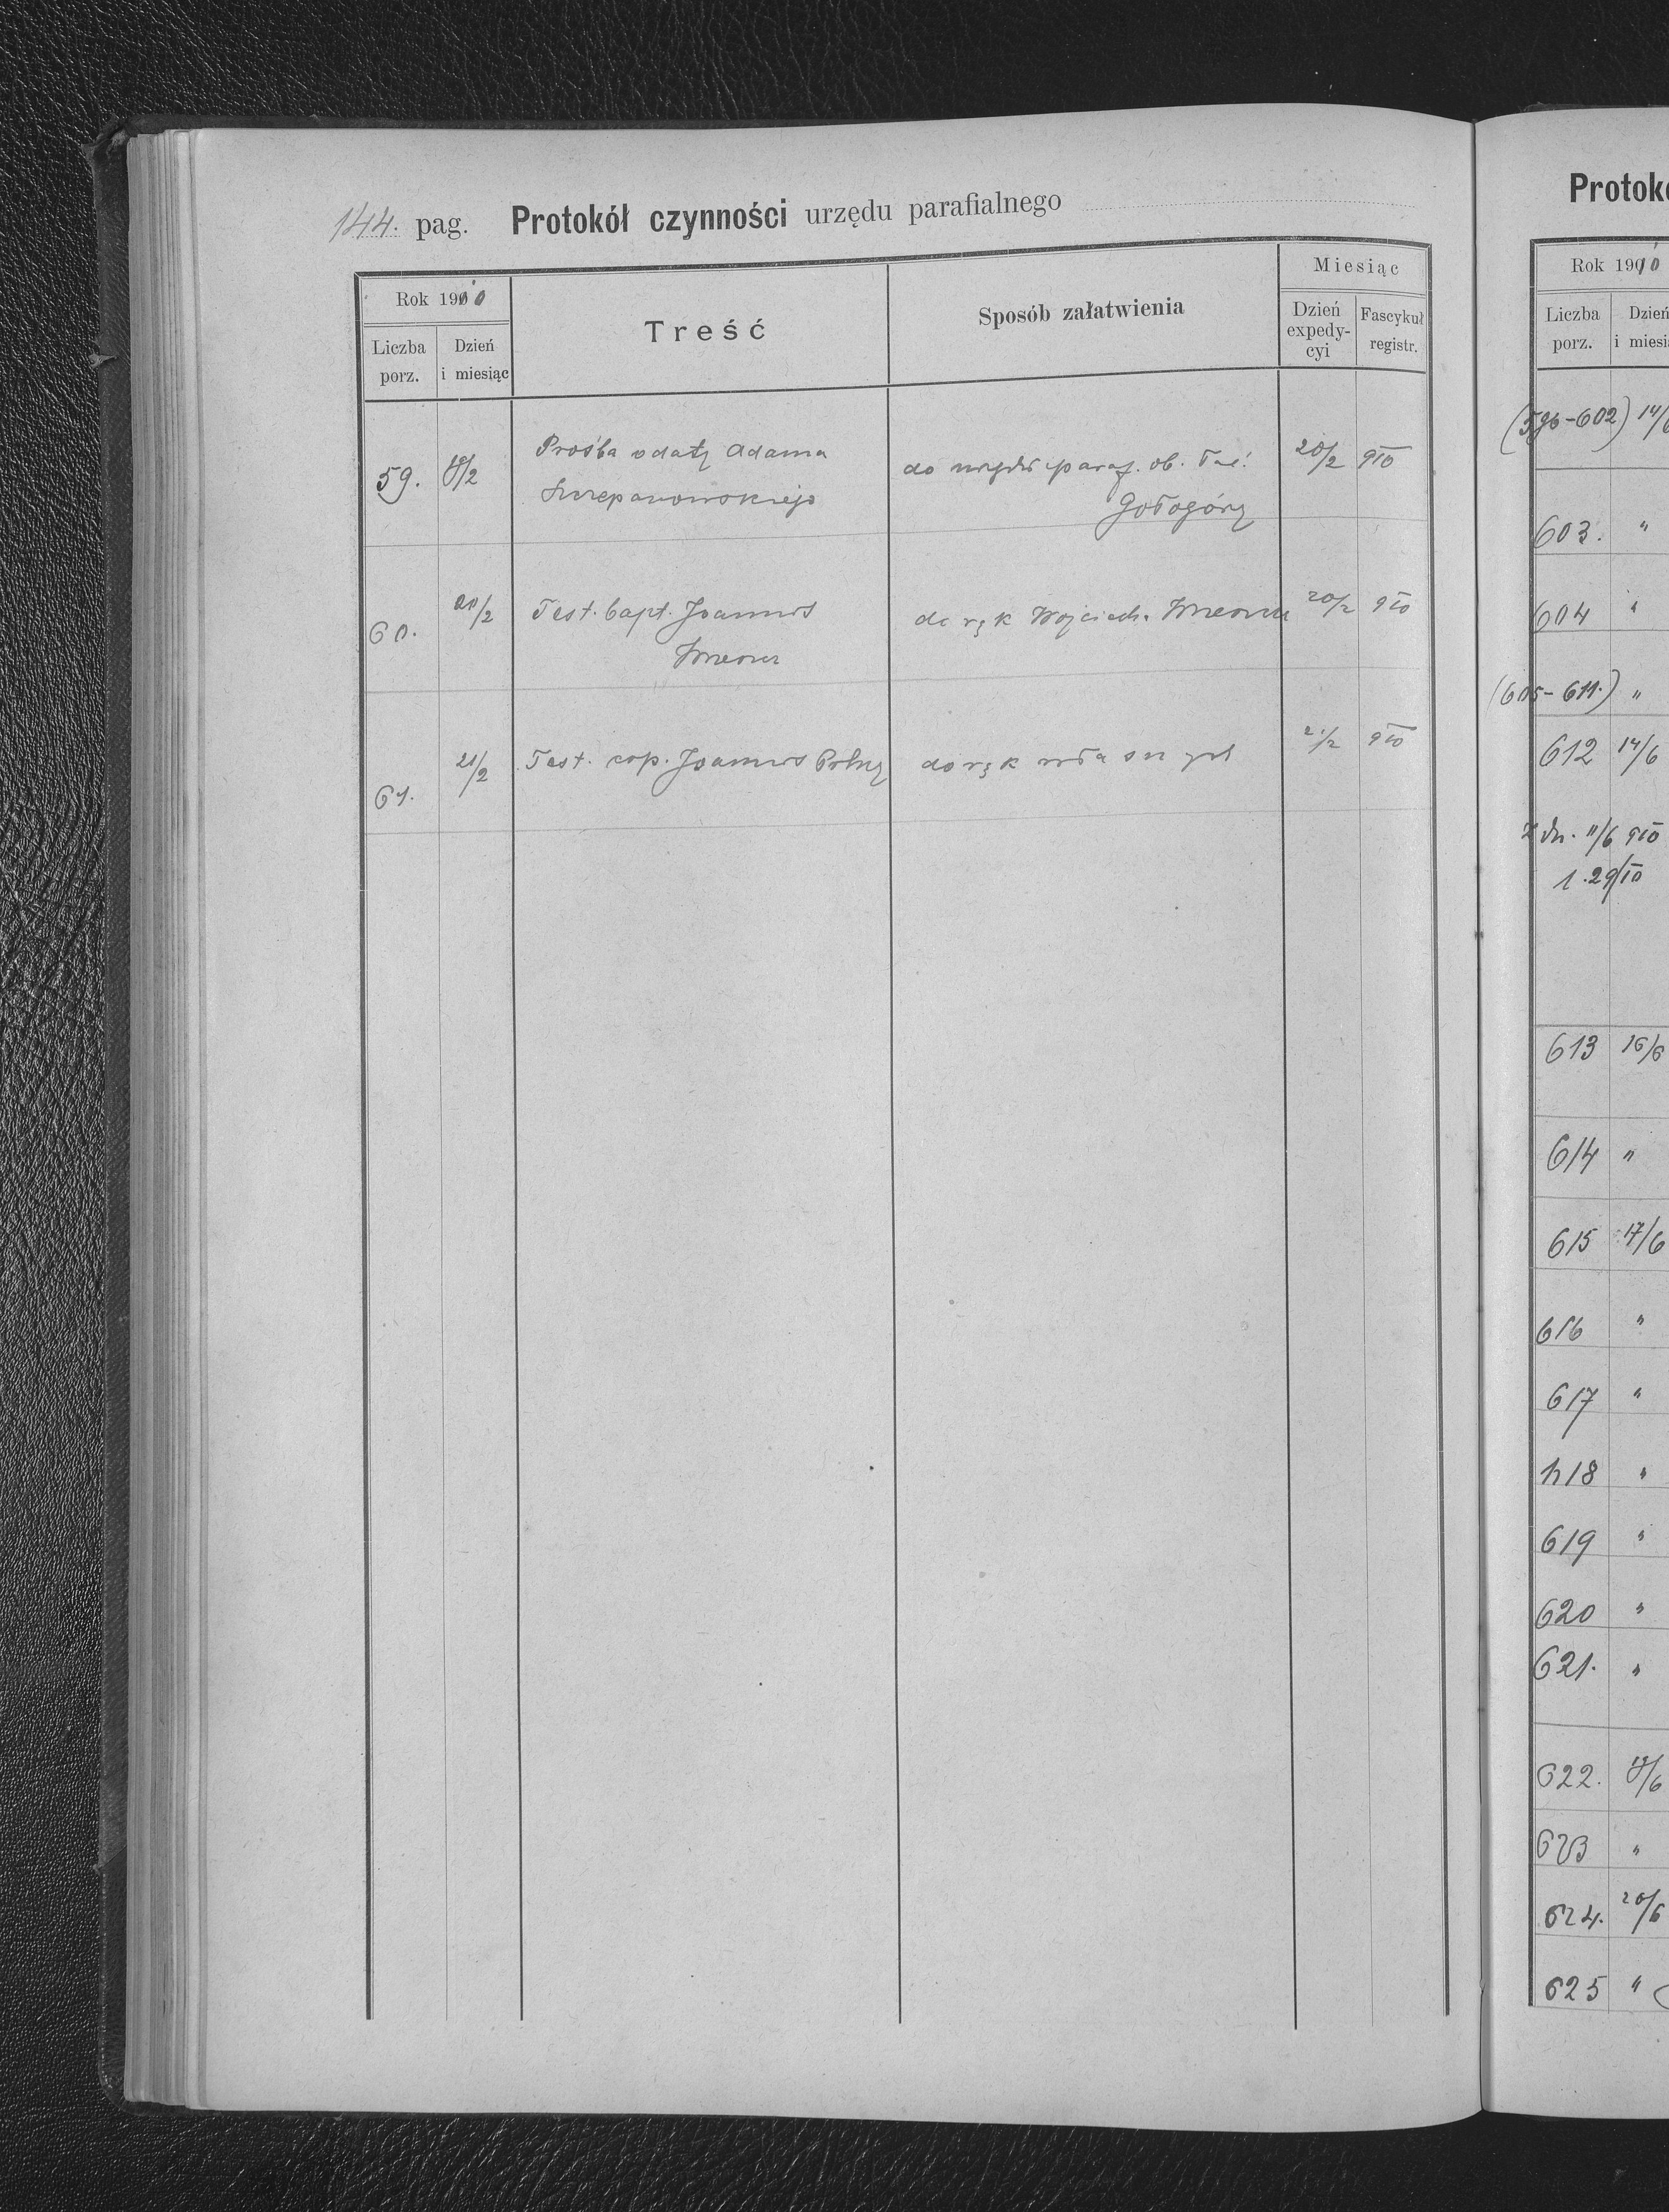 144. pag. Protokół czynności urzędu parafialnego
Rok 1910
Liczba porz.
Dzień i miesiąc
Treść
Sposób załatwienia
Miesiąc
Dzień expedycyi
Fascykuł registr.
59. 19/2 Prośba o daty Adama
Szczepanowskiego
do urzędu paraf. ob. łać.
Gołogóry
20/2 910
60. 20/2 Test. bapt. Joannis
do rąk Wojciech.
20/2 910
61. 21/2 Test. cop. Joannis
do rąk własnych
21/2 910
Protoko
Rok 1910
Liczba porz.
Dzień i miesi
(596-602) 14/6
603. "
604 "
(605-611.) "
612 14/6
z dn. 11/6 910
1.29/10
613 16/6
614 "
615 17/6
616 "
617 "
618 "
619 "
620 "
621. "
622. 19/6
623 "
624. 20/6
625 "